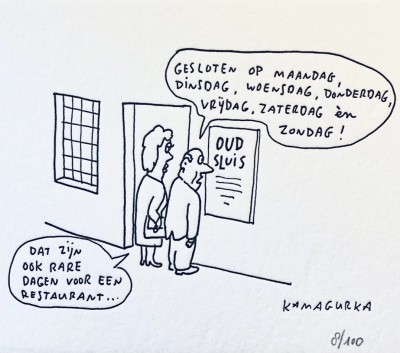 GESLOTEN OP MAANDAG,
DINSDAG, WOENSDAG, DONDERDAG,
VRIJDAG, ZATERDAG èn
ZONDAG!
OUD
SLUIS
DAT ZIJN
OOK RARE
DAGEN VOOR EEN
RESTAURANT...
KAMAGURKA
8/100